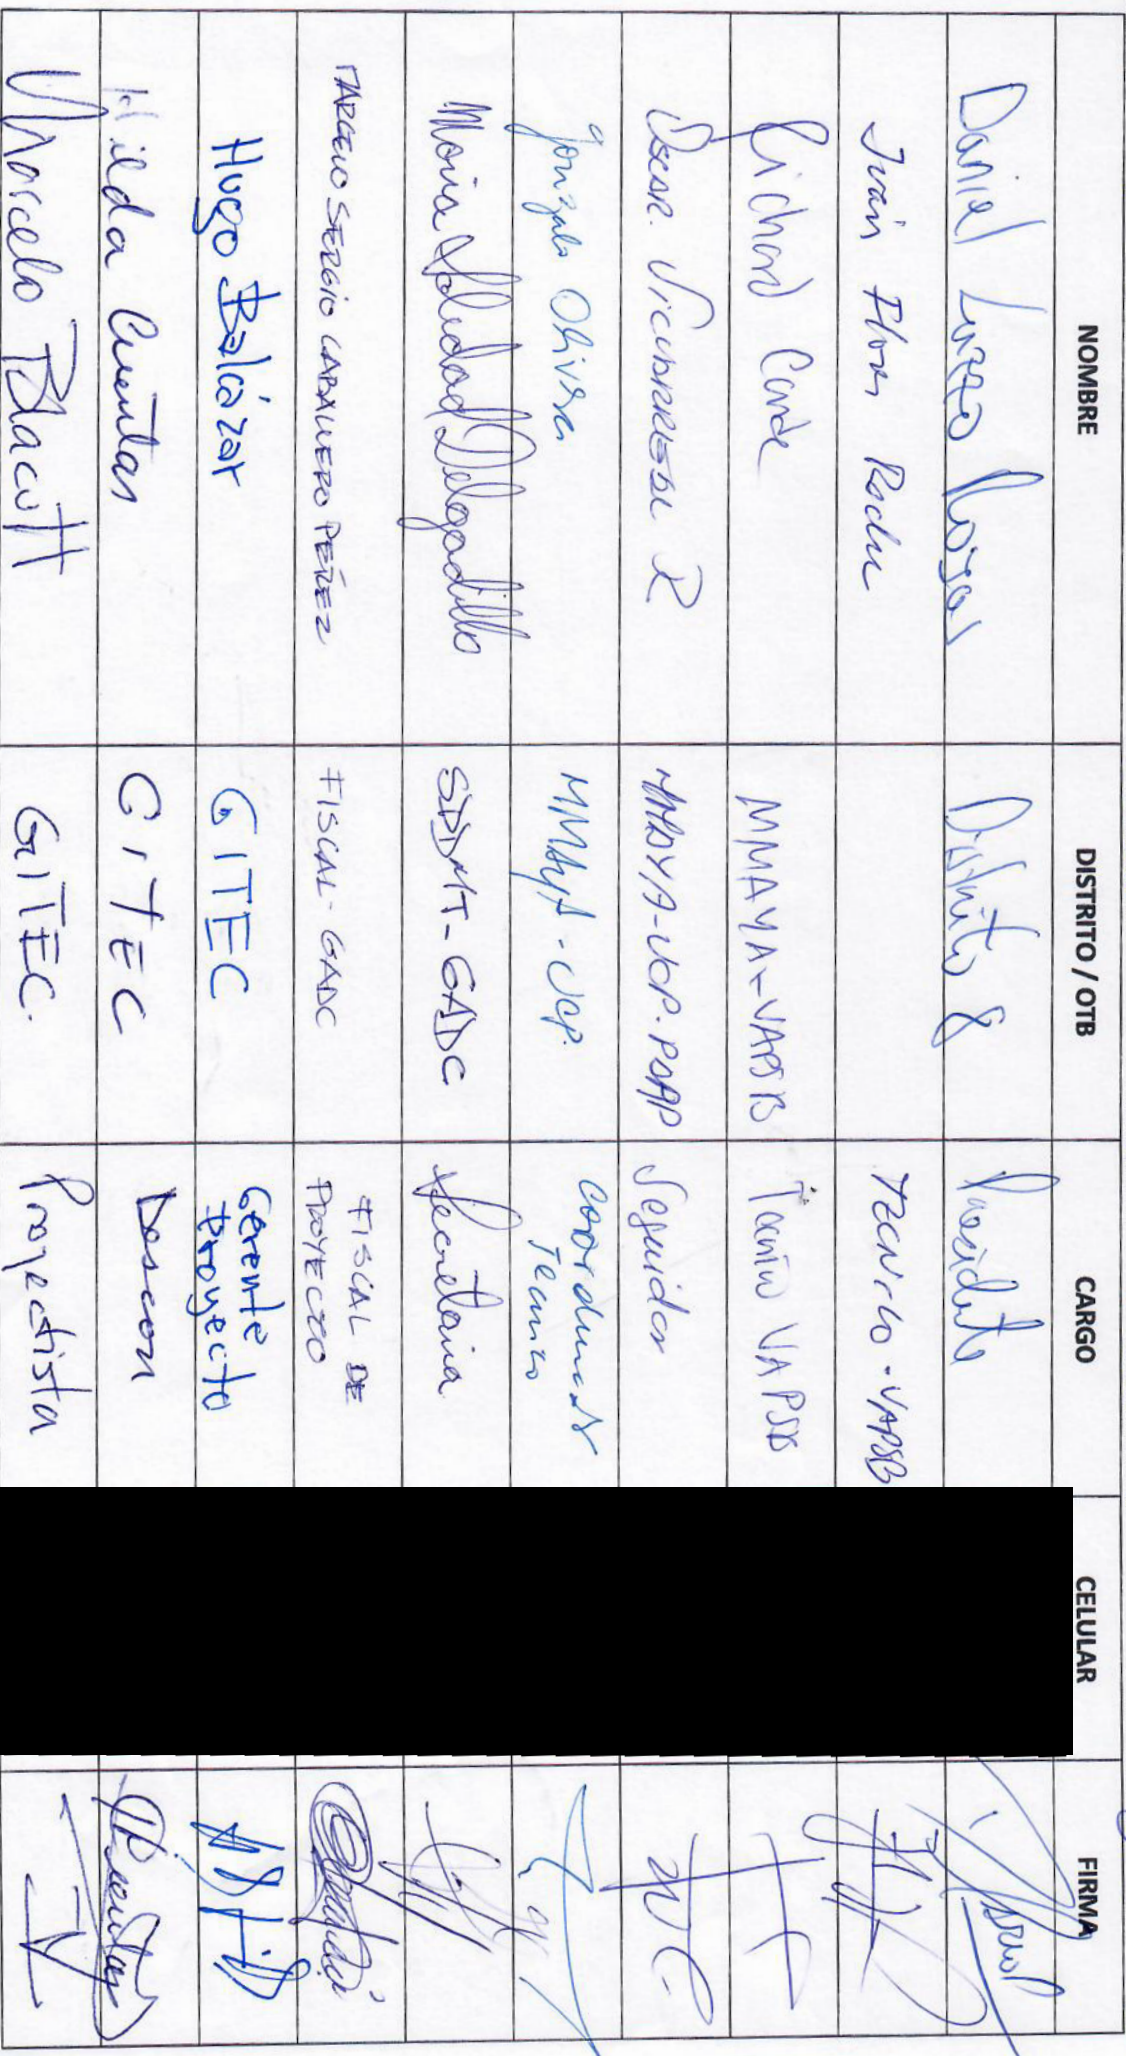 NOMBRE DISTRITO / OTB CARGO CELULAR FIRMA
Daniel Lazzo Rojas Distrito 8 Presidente
Iván Flores Rocha TECNICO - VAPSB
Richard Conde MMAYA - VAPSB Técnico VAPSB
Oscar. MMAYA-UCP. PAAP Seguidor
Gonzalo Olivera MMAyA - UCP. Coordinador
Técnico
Maria Soledad Delgadillo SDDMT - GADC Secretaria
MARCELO SERGIO CABALLERO PEREZ FISCAL - GADC FISCAL DE
PROYECTO
Hugo Balcázar GITEC Gerente
Proyecto
Hilda Cuentas GITEC Descom
Marcelo Blacutt GITEC. Proyectista